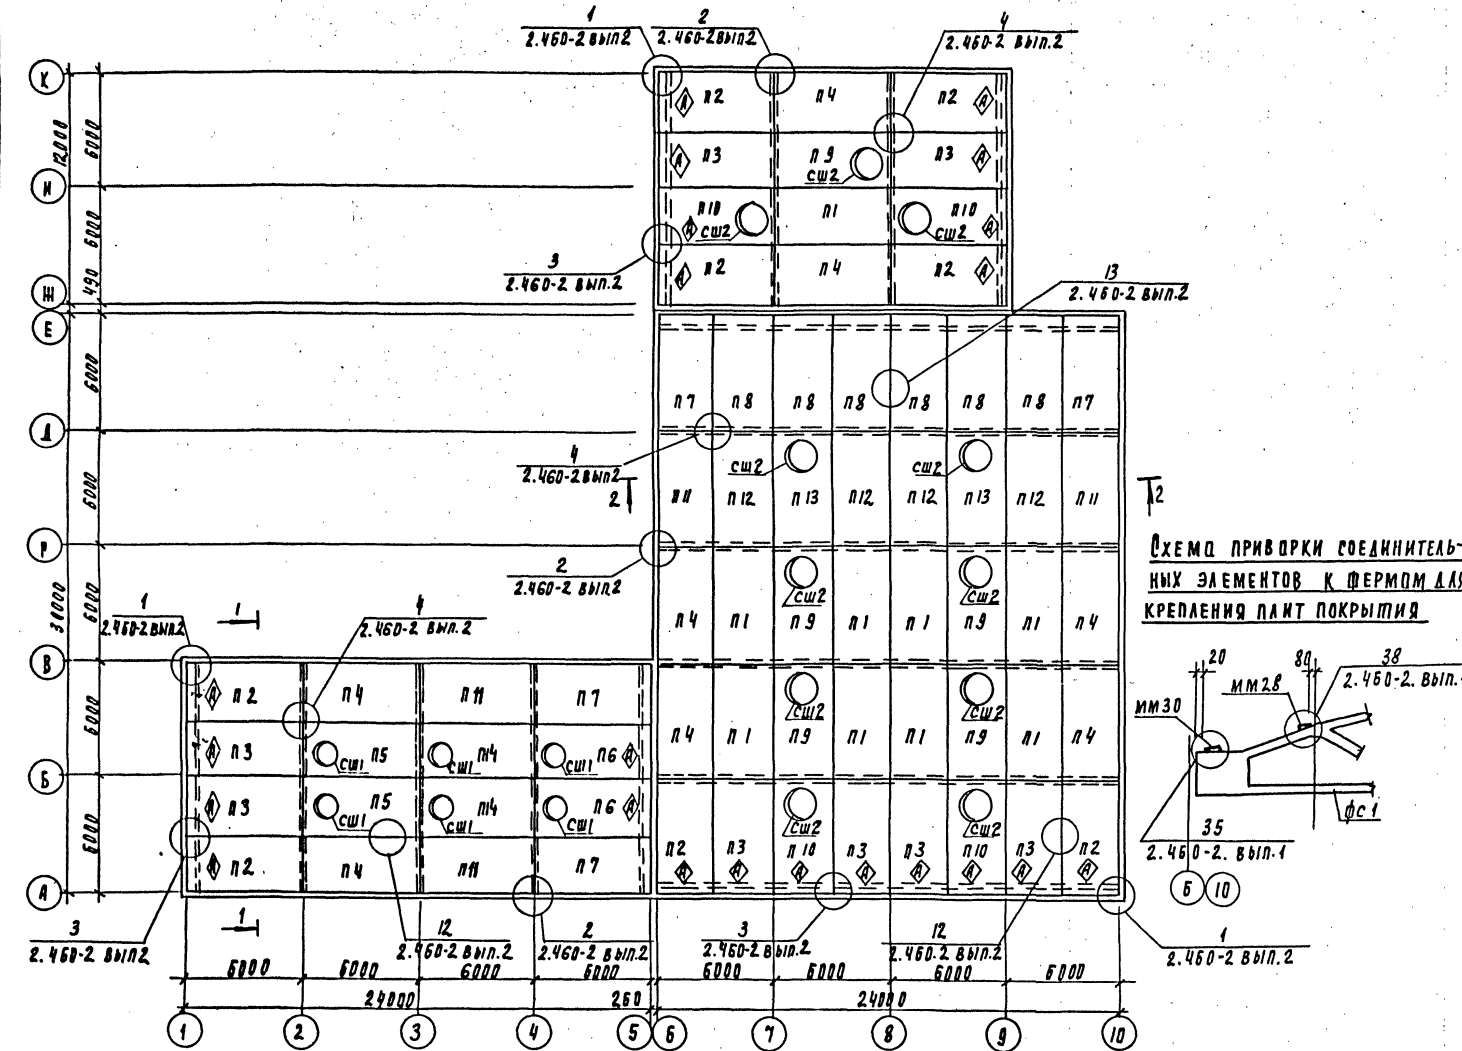 1
2.460-2 вып.2
2
2.460-2 вып.2
4
2.460-2 вып.2
К
12000
6000
И
6000
490
Ж
Е
6000
Д
6000
Г
38000
6000
В
6000
Б
6000
А
П2 П4 П2
П3 П9 П3
СШ2
П10 П1 П10
СШ2 СШ2
П2 П4 П2
А А
А А
А А
А А
3
2.460-2 вып.2
13
2.460-2 вып.2
П7 П8 П8 П8 П8 П8 П8 П7
4
2.460-2 вып.2
СШ2 СШ2
2 2
П11 П12 П13 П12 П12 П13 П12 П11
2
2.460-2 вып.2
СШ2 СШ2
П4 П1 П9 П1 П1 П9 П1 П4
СШ2 СШ2
П4 П1 П9 П1 П1 П9 П1 П4
СШ2 СШ2
П2 П3 П10 П3 П3 П10 П3 П2
А А А А А А А А
1
2.460-2 вып.2
1
4
2.460-2 вып.2
А П2 П4 П11 П7
А П3 П5 П14 П6 А
СШ1 СШ1 СШ1
А П3 П5 П14 П6 А
СШ1 СШ1 СШ1
А П2 П4 П11 П7
1
3
2.460-2 вып.2
12
2.460-2 вып.2
2
2.460-2 вып.2
3
2.460-2 вып.2
12
2.460-2 вып.2
1
2.460-2 вып.2
6000 6000 6000 6000 6000 6000 6000 6000
24000 260 24000
1 2 3 4 5 6 7 8 9 10
Схема приварки соединитель-
ных элементов к фермам для
крепления плит покрытия
20 80
38
2.460-2. вып.
ММ28
ММ30
ФС1
35
2.460-2. вып.1
Б 10